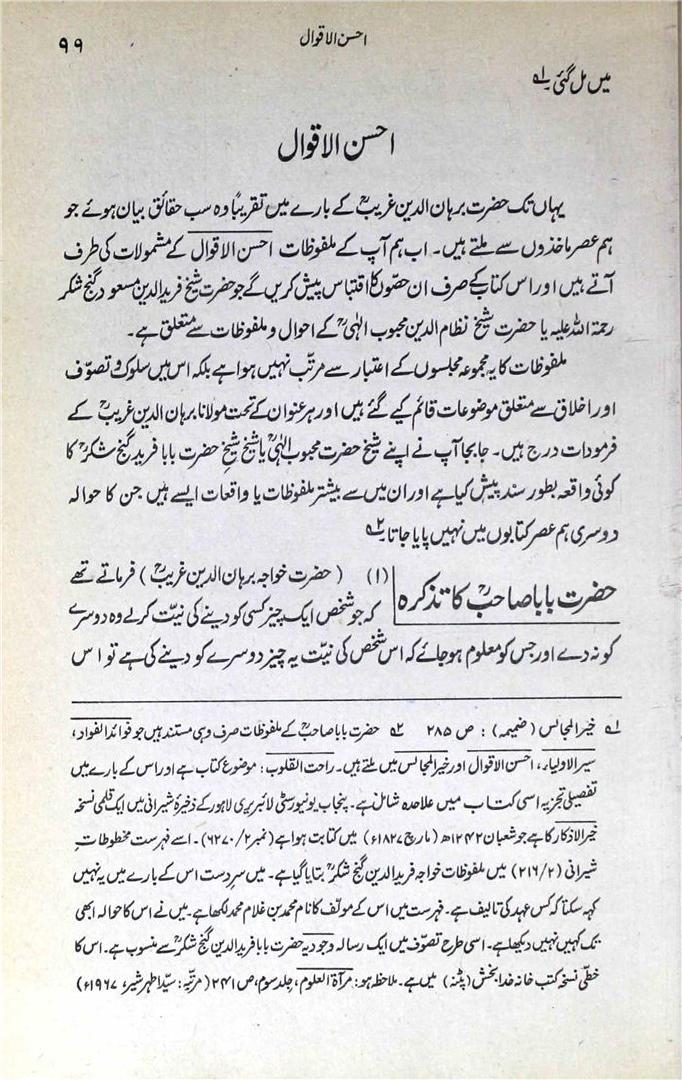 احسن الاقوال
۹۹
میں مل گئی۔ لہ
احسن الاقوال
یہاں تک حضرت برہان الدین غریبؒ کے بارے میں تقریباً وہ سب حقائق بیان ہوئے جو
ہم عصر ماخذوں سے ملتے ہیں۔ اب ہم آپ کے ملفوظات احسن الاقوال کے مشمولات کی طرف
آتے ہیں اور اس کتاب کے صرف ان حصّوں کا اقتباس پیش کریں گے جو حضرت شیخ فرید الدین مسعود گنج شکر
رحمۃ اللہ علیہ یا حضرت شیخ نظام الدین محبوب الٰہیؒ کے احوال و ملفوظات سے متعلق ہے۔
ملفوظات کا یہ مجموعہ مجلسوں کے اعتبار سے مرتّب نہیں ہوا ہے بلکہ اس میں سلوک و تصوّف
اور اخلاق سے متعلق موضوعات قائم کیے گئے ہیں اور ہر عنوان کے تحت مولانا برہان الدین غریبؒ کے
فرمودات درج ہیں۔ جابجا آپ نے اپنے شیخ حضرت محبوب الٰہیؒ یا شیخ شیخ حضرت بابا فرید گنج شکرؒ کا
کوئی واقعہ بطور سند پیش کیا ہے اور ان میں سے بیشتر ملفوظات یا واقعات ایسے ہیں جن کا حوالہ
دوسری ہم عصر کتابوں میں نہیں پایا جاتا۔ ۲ہ
حضرت بابا صاحبؒ کا تذکرہ
(۱) (حضرت خواجہ برہان الدین غریبؒ) فرماتے تھے
کہ جو شخص ایک چیز کسی کو دینے کی نیّت کرلے وہ دوسرے
کو نہ دے اور جس کو معلوم ہو جائے کہ اس شخص کی نیّت یہ چیز دوسرے کو دینے کی ہے تو اس
لہ خیر المجالس (ضمیمہ) : ص ۲۸۵ ۲ہ حضرت بابا صاحبؒ کے ملفوظات صرف وہی مستند ہیں جو فوائد الفواد،
سیر الاولیاء، احسن الاقوال اور خیر المجالس میں ملتے ہیں۔ راحت القلوب : موضوع کتاب ہے اور اس کے بارے میں
تفصیلی تجزیہ اسی کتاب میں علاحدہ شامل ہے۔ پنجاب یونیورسٹی لائبریری لاہور کے ذخیرۂ شیرانی میں ایک قلمی نسخہ
خیر الاذکار کا ہے جو شعبان ۱۲۴۲ھ (مارچ ۱۸۲۷ء) میں کتابت ہوا ہے (نمبر ۶۲۷۰/۲)۔ اسے فہرست مخطوطاتِ
شیرانی (۲۱۶/۲) میں ملفوظات خواجہ فرید الدین گنج شکرؒ بتایا گیا ہے۔ میں سرِدست اس کے بارے میں یہ نہیں
کہہ سکتا کہ کس عہد کی تالیف ہے۔ فہرست میں اس کے مولّف کا نام محمد بن غلام محمد لکھا ہے۔ میں نے اس کا حوالہ ابھی
تک کہیں نہیں دیکھا ہے۔ اسی طرح تصوّف میں ایک رسالہ وجودیہ حضرت بابا فرید الدین گنج شکرؒ سے منسوب ہے۔ اس کا
خطّی نسخہ کتب خانہ خدا بخش (پٹنہ) میں ہے۔ ملاحظہ ہو : مرآۃ العلوم، جلد سوم، ص ۲۴۱ (مرتّبہ : سیّد اطہر شیر، ۱۹۶۷ء)